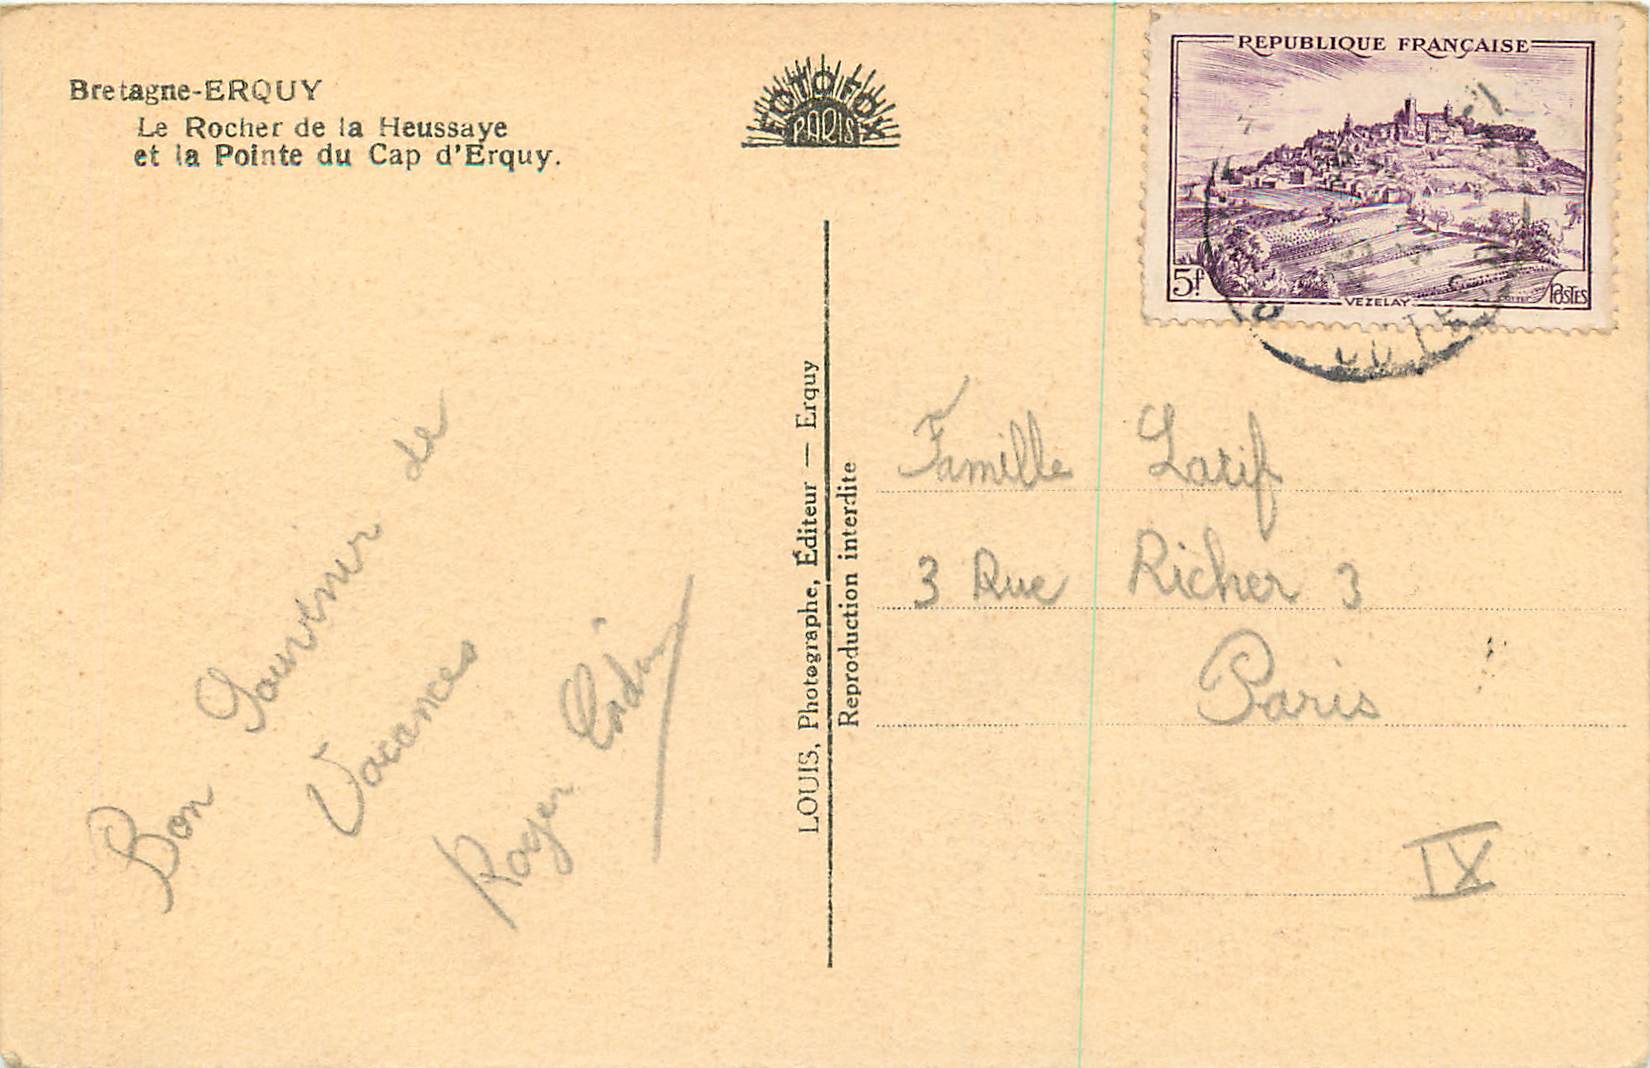 Bretagne-ERQUY
Le Rocher de la Heussaye
et la Pointe du Cap d'Erquy.
FOTO FOX
PARIS
REPUBLIQUE FRANÇAISE
5f
VEZELAY
POSTES
LOUIS, Photographe, Éditeur — Erquy
Reproduction interdite
Bon Souvenir de
Vacances
Roger
Famille Larif
3 Rue Richer 3
Paris
IX